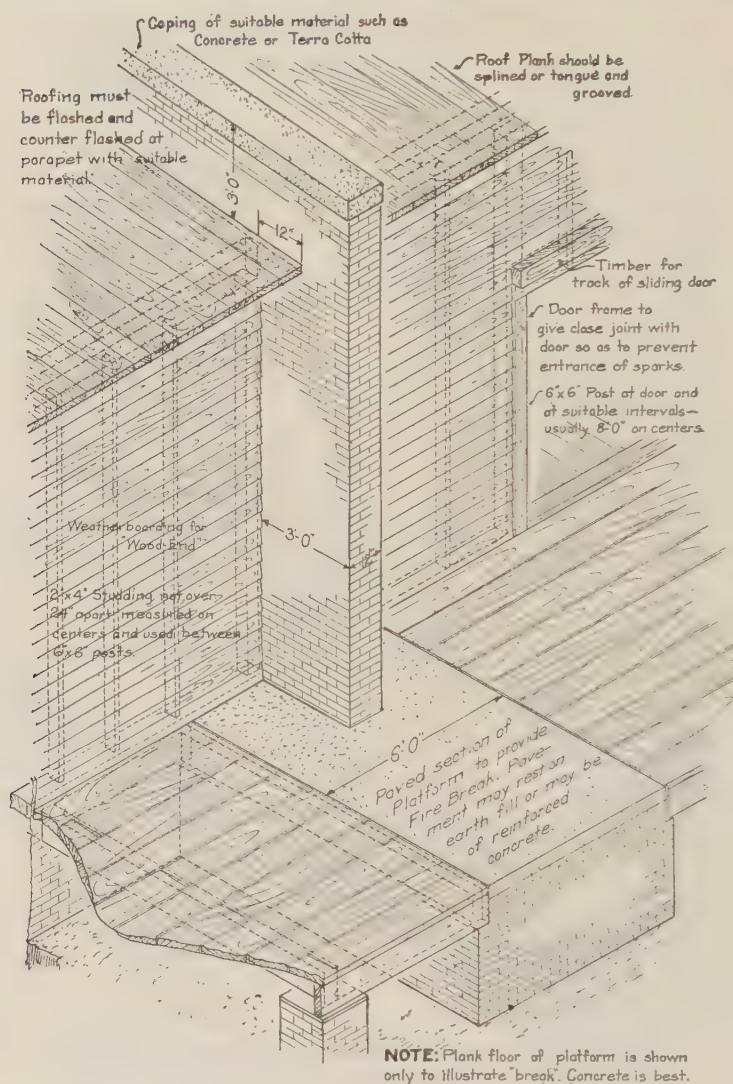 Coping of suitable material such as
Concrete or Terra Cotta
Roof Plank should be
splined or tongue and
grooved.
Roofing must
be flashed and
counter flashed at
parapet with suitable
material.
3'-0"
12"
Timber for
track of sliding door
Door frame to
give close joint with
door so as to prevent
entrance of sparks.
6"x6" Post at door and
at suitable intervals-
usually 8'-0" on centers.
Weatherboarding for
"Wood-End"
3'-0"
12"
2"x4" Studding not over
24" apart measured on
centers and used between
6"x6" posts.
6'-0"
Paved section of
Platform to provide
Fire Break. Pave-
ment may rest on
earth fill or may be
of reinforced
concrete.
NOTE: Plank floor of platform is shown
only to illustrate "break". Concrete is best.